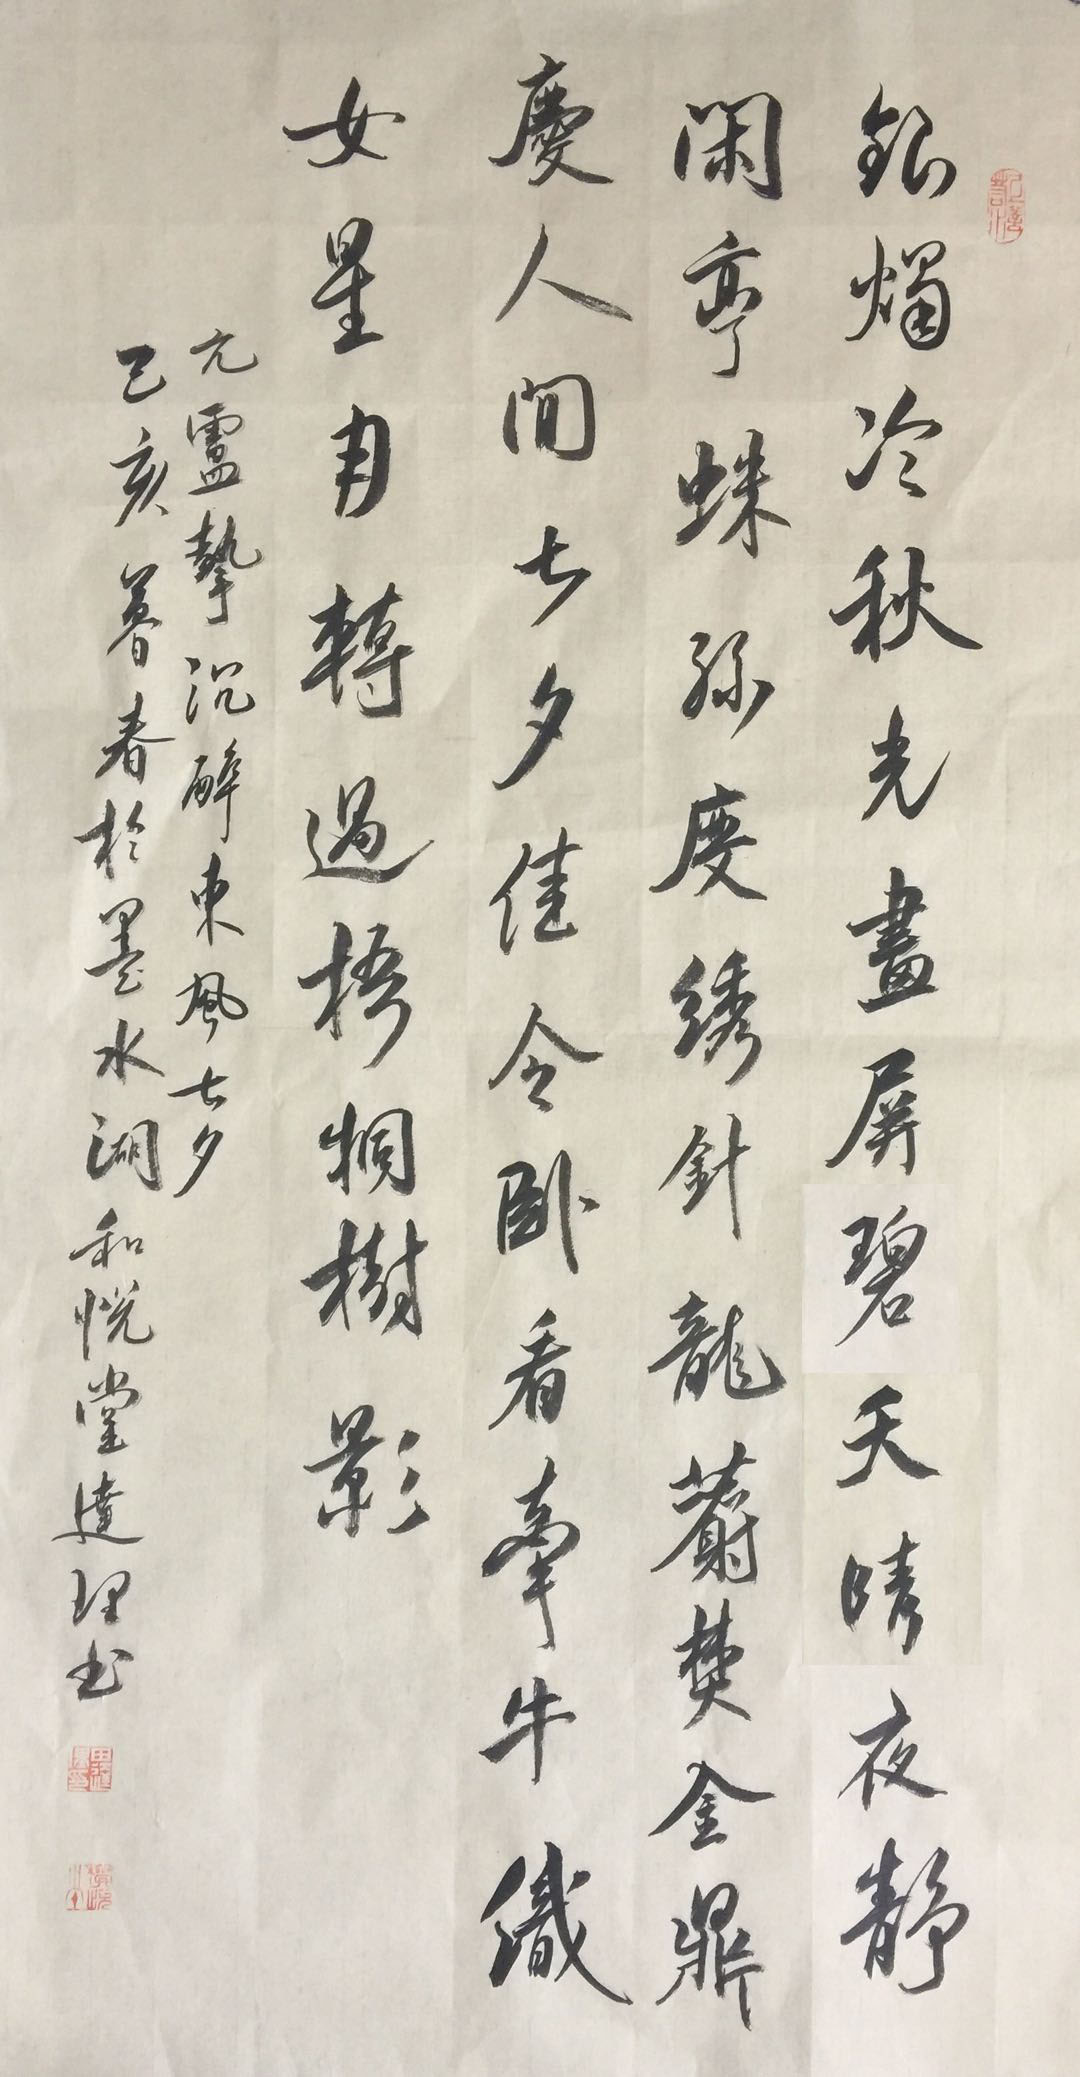 銀燭冷秋光畫屏碧天晴夜靜
閑亭蛛絲度綉針龍麝焚金鼎
慶人間七夕佳令臥看牽牛織
女星月轉過梧桐樹影
元盧摯沉醉東風七夕
己亥暮春於墨水湖和悅堂達理书